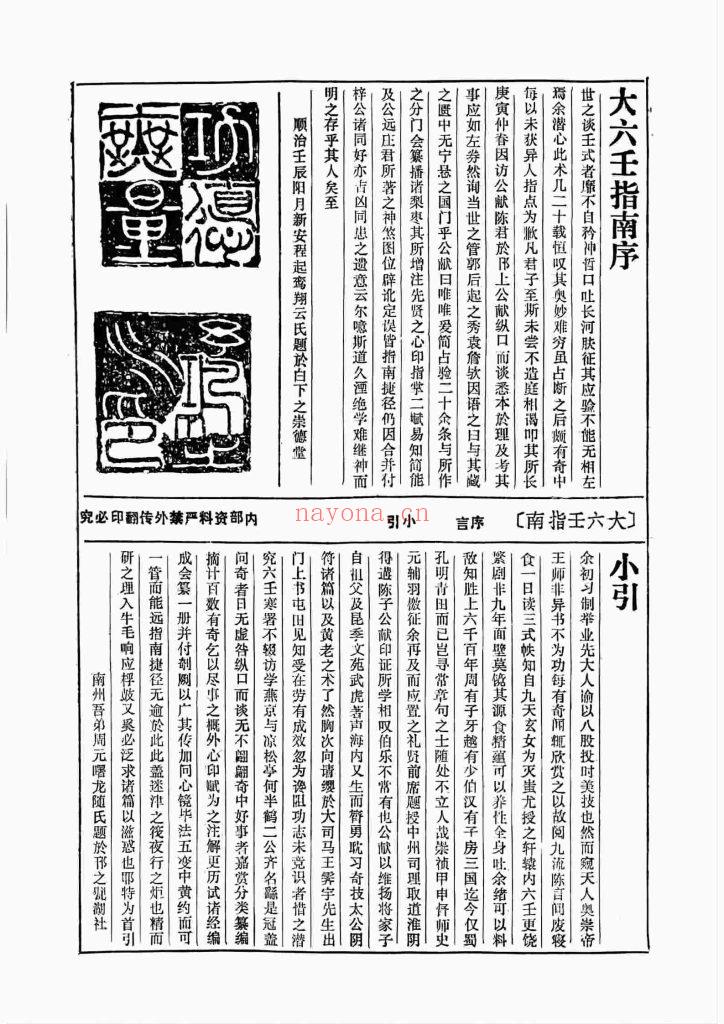 大六壬指南序
世之谈壬式者靡不自矜神哲口吐长河肤征其应验不能无相左
焉余潜心此术几二十载恒叹其奥妙难穷虽占断之后颇有奇中
每以未获异人指点为歉凡君子至斯未尝不造庭相谒叩其所长
庚寅仲春因访公献陈君於邗上公献纵口而谈悉本於理及考其
事应如左券然询当世之管郭后起之秀袁詹欤因语之曰与其藏
之匮中无宁悬之国门乎公献曰唯唯爰简占验二十余条与所作
之分门会纂播诸梨枣其所增注先贤之心印指掌二赋易知简能
及公远庄君所著之神煞图位辟讹定误皆指南捷径仍因合并付
梓公诸同好亦吉凶同患之遗意云尔噫斯道久湮绝学难继神而
明之存乎其人矣至
顺治壬辰阳月新安程起鸾翔云氏题於白下之崇德堂
功德无量
〔大六壬指南〕
序言
小引
内部资料严禁外传翻印必究
nayona.cn
小引
余初习制举业先大人谕以八股投时美技也然而窥天人奥崇帝
王师非异书不为功每有奇闻辄欣赏之以故阅九流陈言间废寝
食一日读三式帙知自九天玄女为灭蚩尤授之轩辕内六壬更饶
繁剧非九年面壁莫镜其源食精蕴可以养性全身吐余绪可以料
敌知胜上六千百年周有子牙越有少伯汉有子房三国迄今仅蜀
孔明青田而已岂寻常章句之士随处不立人哉崇祯甲申督师史
元辅羽檄征余再及而应置之礼贤前席题授中州司理取道淮阴
得遘陈子公献印证所学相叹伯乐不常有也公献以维扬将家子
自祖父及昆季文苑武虎著声海内又生而膂勇耽习奇技太公阴
符诸篇以及黄老之术了然胸次向请缨於大司马王霁宇先生出
门上书屯田见知受在劳有成效忽为谗阻功志未竞识者惜之潜
究六壬寒署不辍访学燕京与凉松亭何半鹤二公齐名繇是冠盖
问奇者日无虚咎纵口而谈无不翩翩奇中好事者嘉赏分类纂编
摘计百数有奇乞以尽事之概外心印赋为之注解更历试诸经编
成会纂一册并付剞劂以广其传加同心镜毕法五变中黄约而可
一管而能远指南捷径无逾於此此盖迷津之筏夜行之炬也精而
研之理入牛毛响应桴鼓又奚必泛求诸篇以滋惑也耶特为首引
南州吾弟周元曙龙随氏题於邗之甓湖社